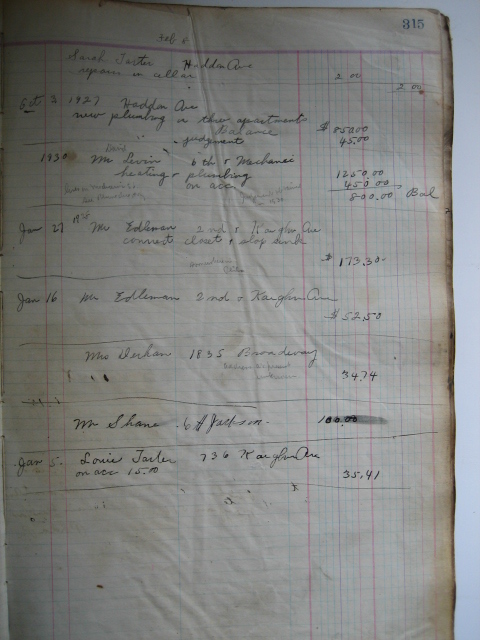 315
Feb 8
Sarah Tarter Haddon Ave
repairs in cellar 2 00
2 00
Oct 3 1927 Haddon Ave
new plumbing in three apartments $ 850.00
Balance 45.00
judgment
1930 Mr Levin 6th & Mechanic
heating & plumbing 1250.00
on acc 450 00
800.00 Bal
Jan 27 Mr Edleman 2nd & Kaighn Ave
connect closet & slop sink
$ 173.30
Jan 16 Mr Edleman 2nd & Kaighn Ave
$ 52.50
Mrs Derhan 1835 Broadway
34.74
Mr Shane 6 & Jackson 100.00
Jan 5 Louie Tarter 736 Kaighn Ave
on acc 15.00 35.41